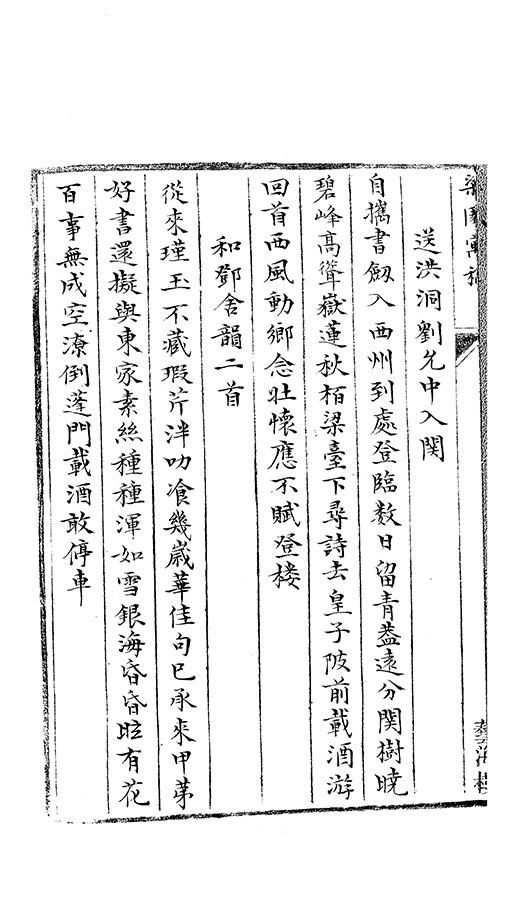 送洪洞劉允中入関
自攜書劔入西州到處登臨数日留青葢遠分関樹曉
碧峰髙聳嶽蓮秋栢梁臺下尋詩去皇子陂前載酒游
回首西風動鄉念壯懷應不賦登楼
和鄧舍韻二首
從來瑾玉不藏瑕芹泮叨飡幾歲華佳句已承來甲苐
好書還擬與東家素絲種種渾如雪銀海昏昏眩有花
百事無成空潦倒蓬門載酒敢停車